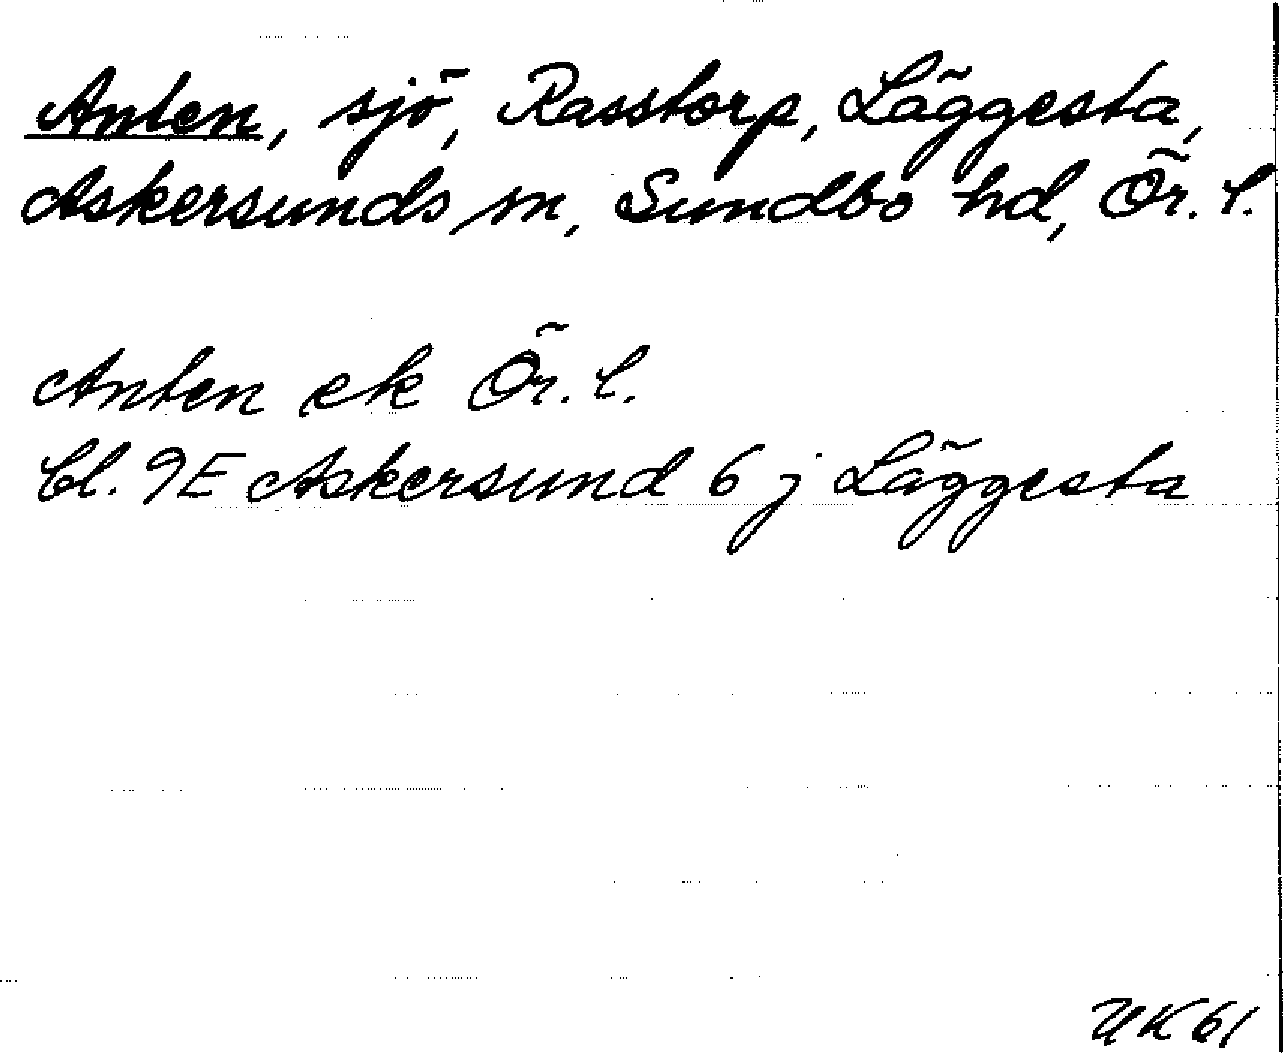 Anten, sjö, Rasstorp, Läggesta,
Askersunds sn, Sundbo hd, Ör. l.
Anten ek Ör. l.
Bl. 9E Askersund 6 j Läggesta
UK 61